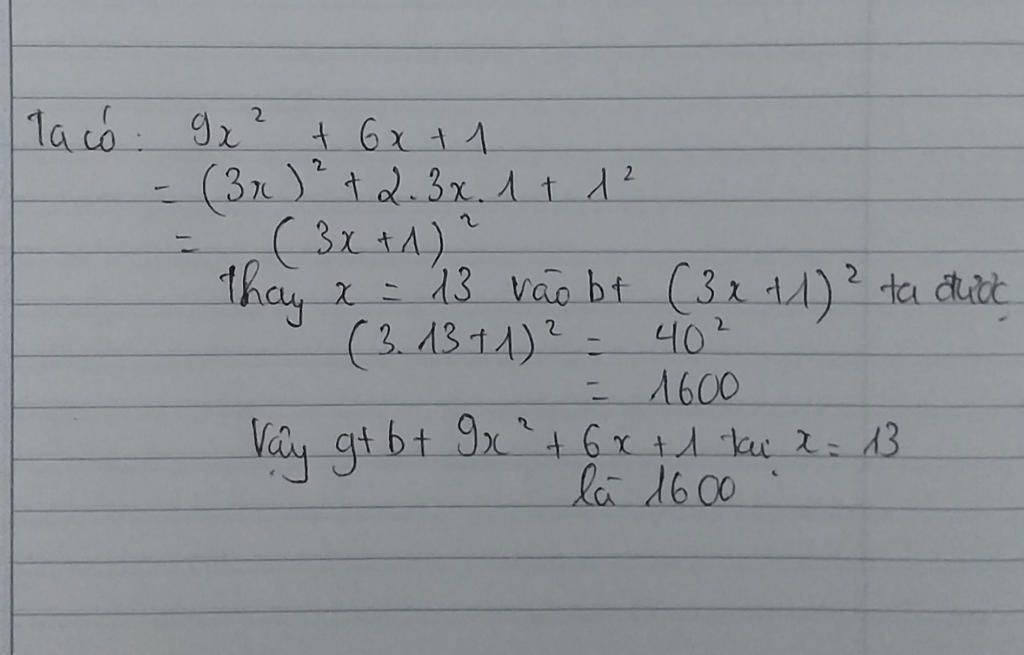 Ta có: 9x² + 6x + 1
= (3x)² + 2.3x.1 + 1²
= (3x+1)²
Thay x = 13 vào bt (3x+1)² ta được
(3.13+1)² = 40²
= 1600
Vậy gt bt 9x² + 6x + 1 tại x = 13
là 1600